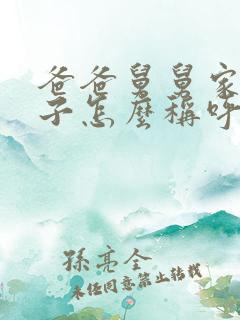 爸爸舅舅家
子怎麼稱呼
孫亮全
未經同意禁止轉載